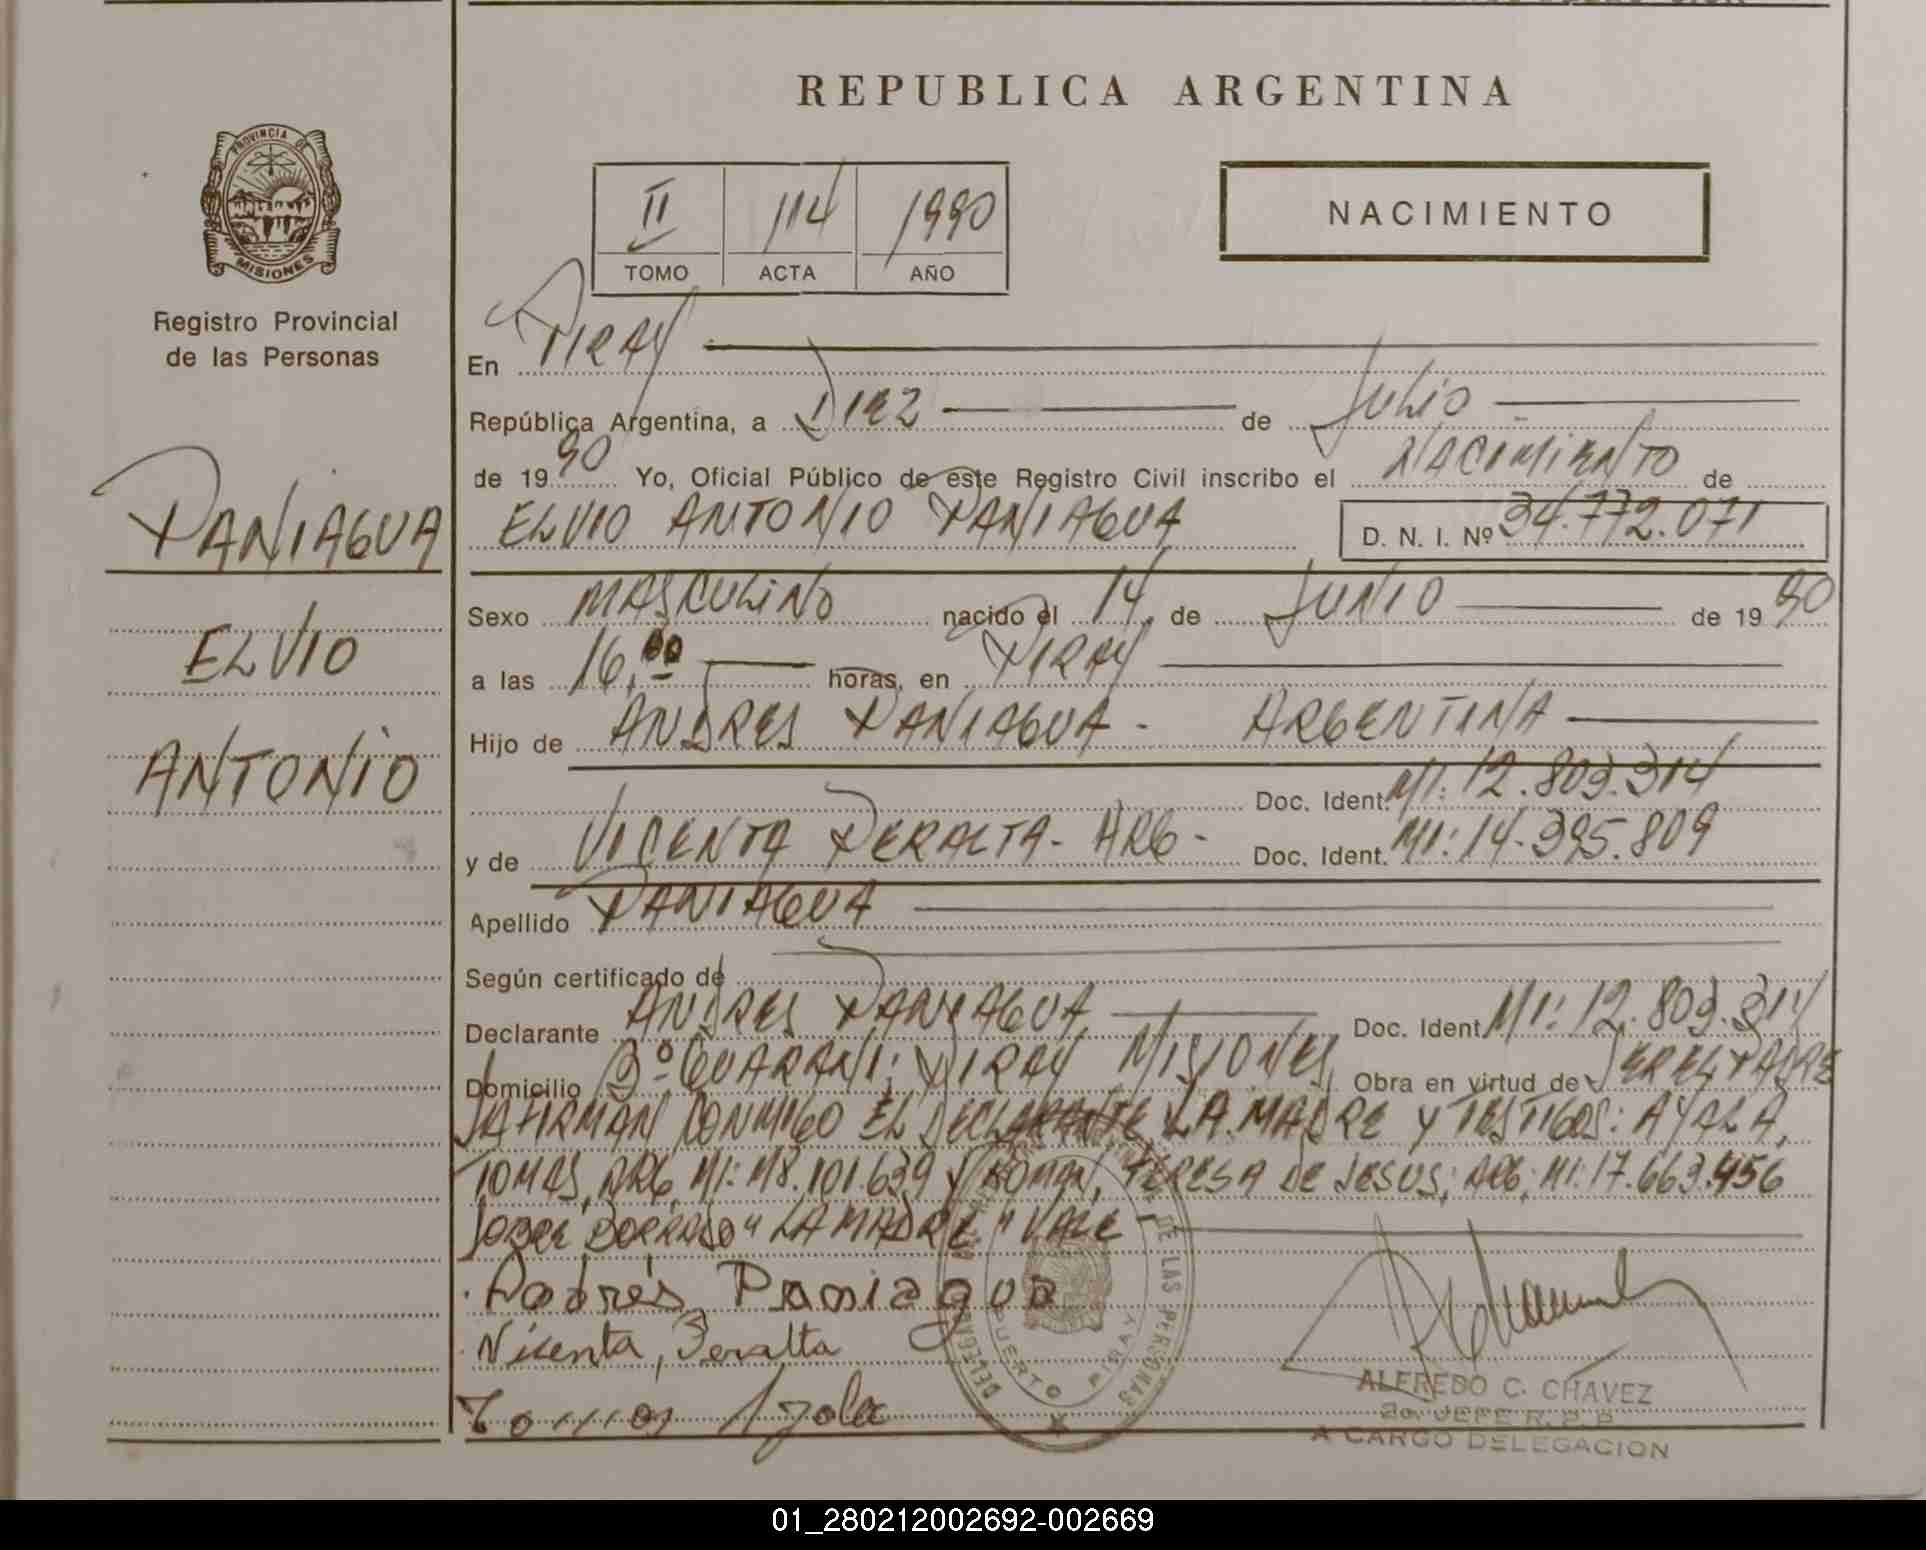 REPUBLICA ARGENTINA
PROVINCIA DE
MISIONES
Registro Provincial
de las Personas
II 114 1990
TOMO ACTA AÑO
NACIMIENTO
PANIAGUA
ELVIO
ANTONIO
En PIRAY
República Argentina, a DIEZ de JULIO
de 1990 Yo, Oficial Público de este Registro Civil inscribo el NACIMIENTO de
ELVIO ANTONIO PANIAGUA D. N. I. Nº 34.772.071
Sexo MASCULINO nacido el 14 de JUNIO de 1990
a las 16,00 horas, en PIRAY
Hijo de ANDRES PANIAGUA - ARGENTINA
Doc. Ident. MI: 12.803.314
y de VICENTA PERALTA - ARG - Doc. Ident. MI: 14.395.809
Apellido PANIAGUA
Según certificado de
Declarante ANDRES PANIAGUA Doc. Ident. MI: 12.803.314
Domicilio Bº GUARANI; PIRAY MISIONES, Obra en virtud de SER EL PADRE
FIRMAN CONMIGO EL DECLARANTE LA MADRE Y TESTIGOS: AYALA,
TOMAS, ARG, MI: M8.101.639 Y ROMAN, TERESA DE JESUS; ARG; MI: 17.663.456
SOBRE BORRADO "LA MADRE" VALE
Andrés Paniagua
Vicenta, Peralta
Tomas Ayala
DE LAS PERSONAS
PUERTO PIRAY
ALFREDO C. CHAVEZ
2o. JEFE R. P. P.
A CARGO DELEGACION
01_280212002692-002669